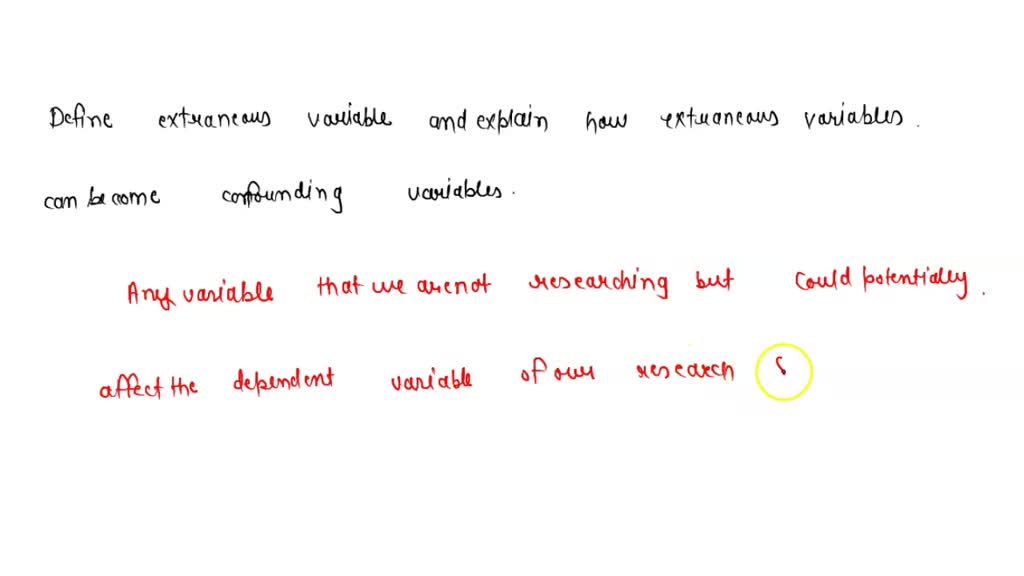 Define extraneous variable and explain how extraneous variables.
can become confounding variables.
Any variable that we are not researching but could potentially.
affect the dependent variable of our research s